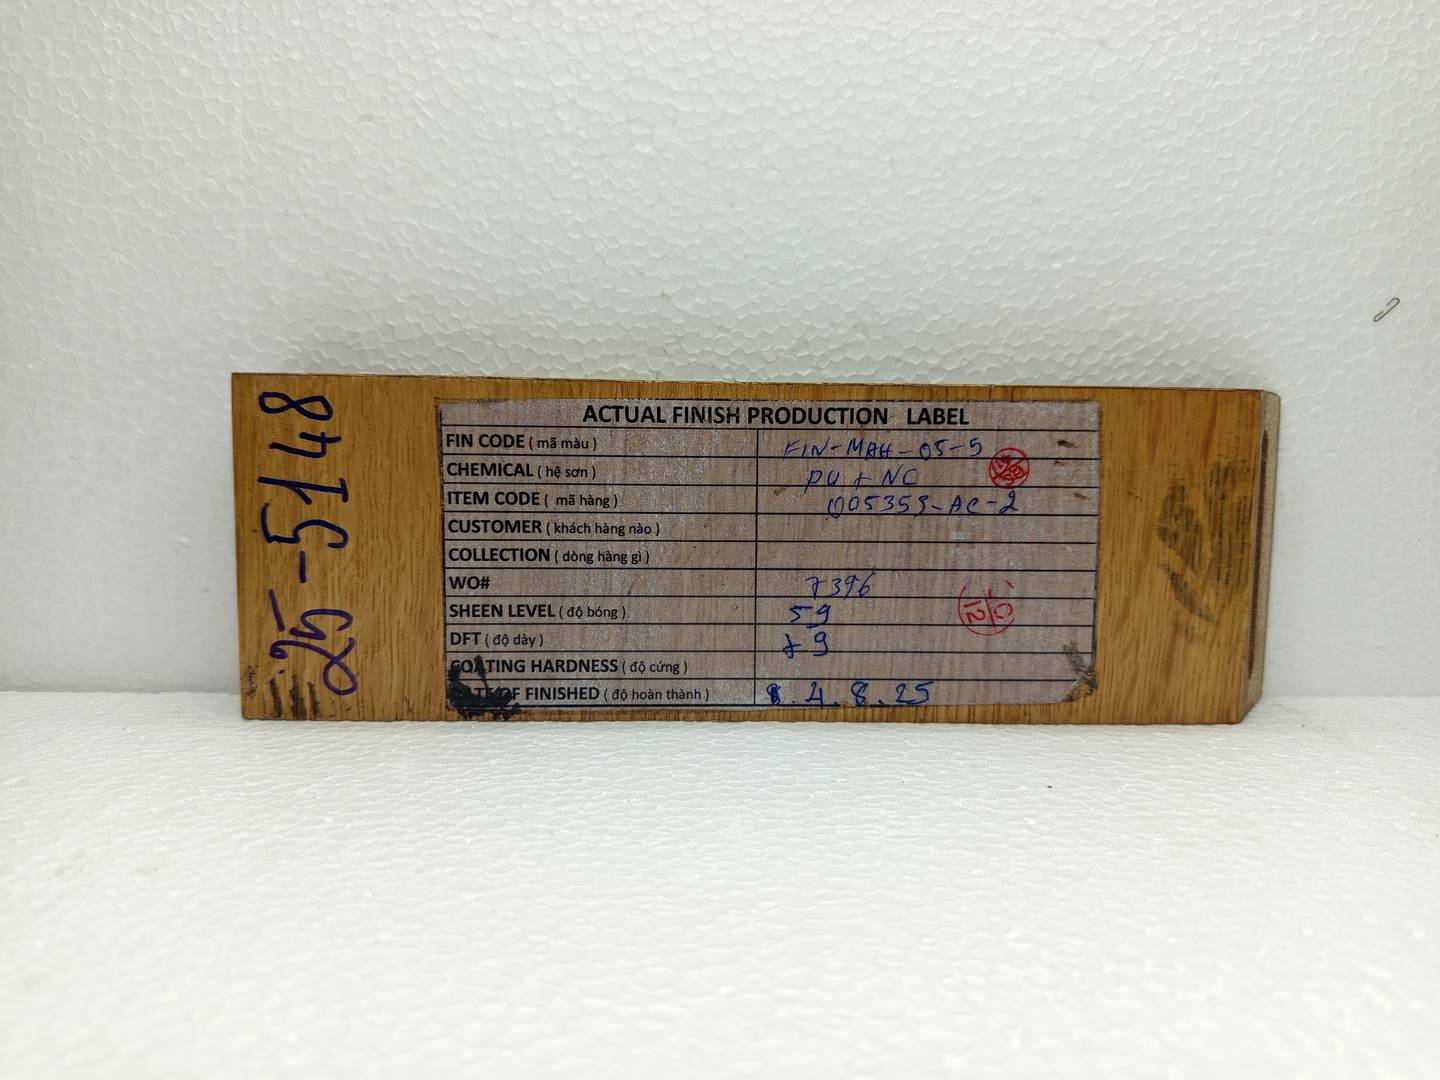 25-5148
ACTUAL FINISH PRODUCTION LABEL
FIN CODE ( mã màu ) FIN-MAH-05-5
CHEMICAL ( hệ sơn ) PU + NC
ITEM CODE ( mã hàng ) 005359-AC-2
CUSTOMER ( khách hàng nào )
COLLECTION ( dòng hàng gì )
WO# 7396
SHEEN LEVEL ( độ bóng ) 59
DFT ( độ dày ) 79
COATING HARDNESS ( độ cứng )
DATE OF FINISHED ( độ hoàn thành ) 4.8.25
C
12